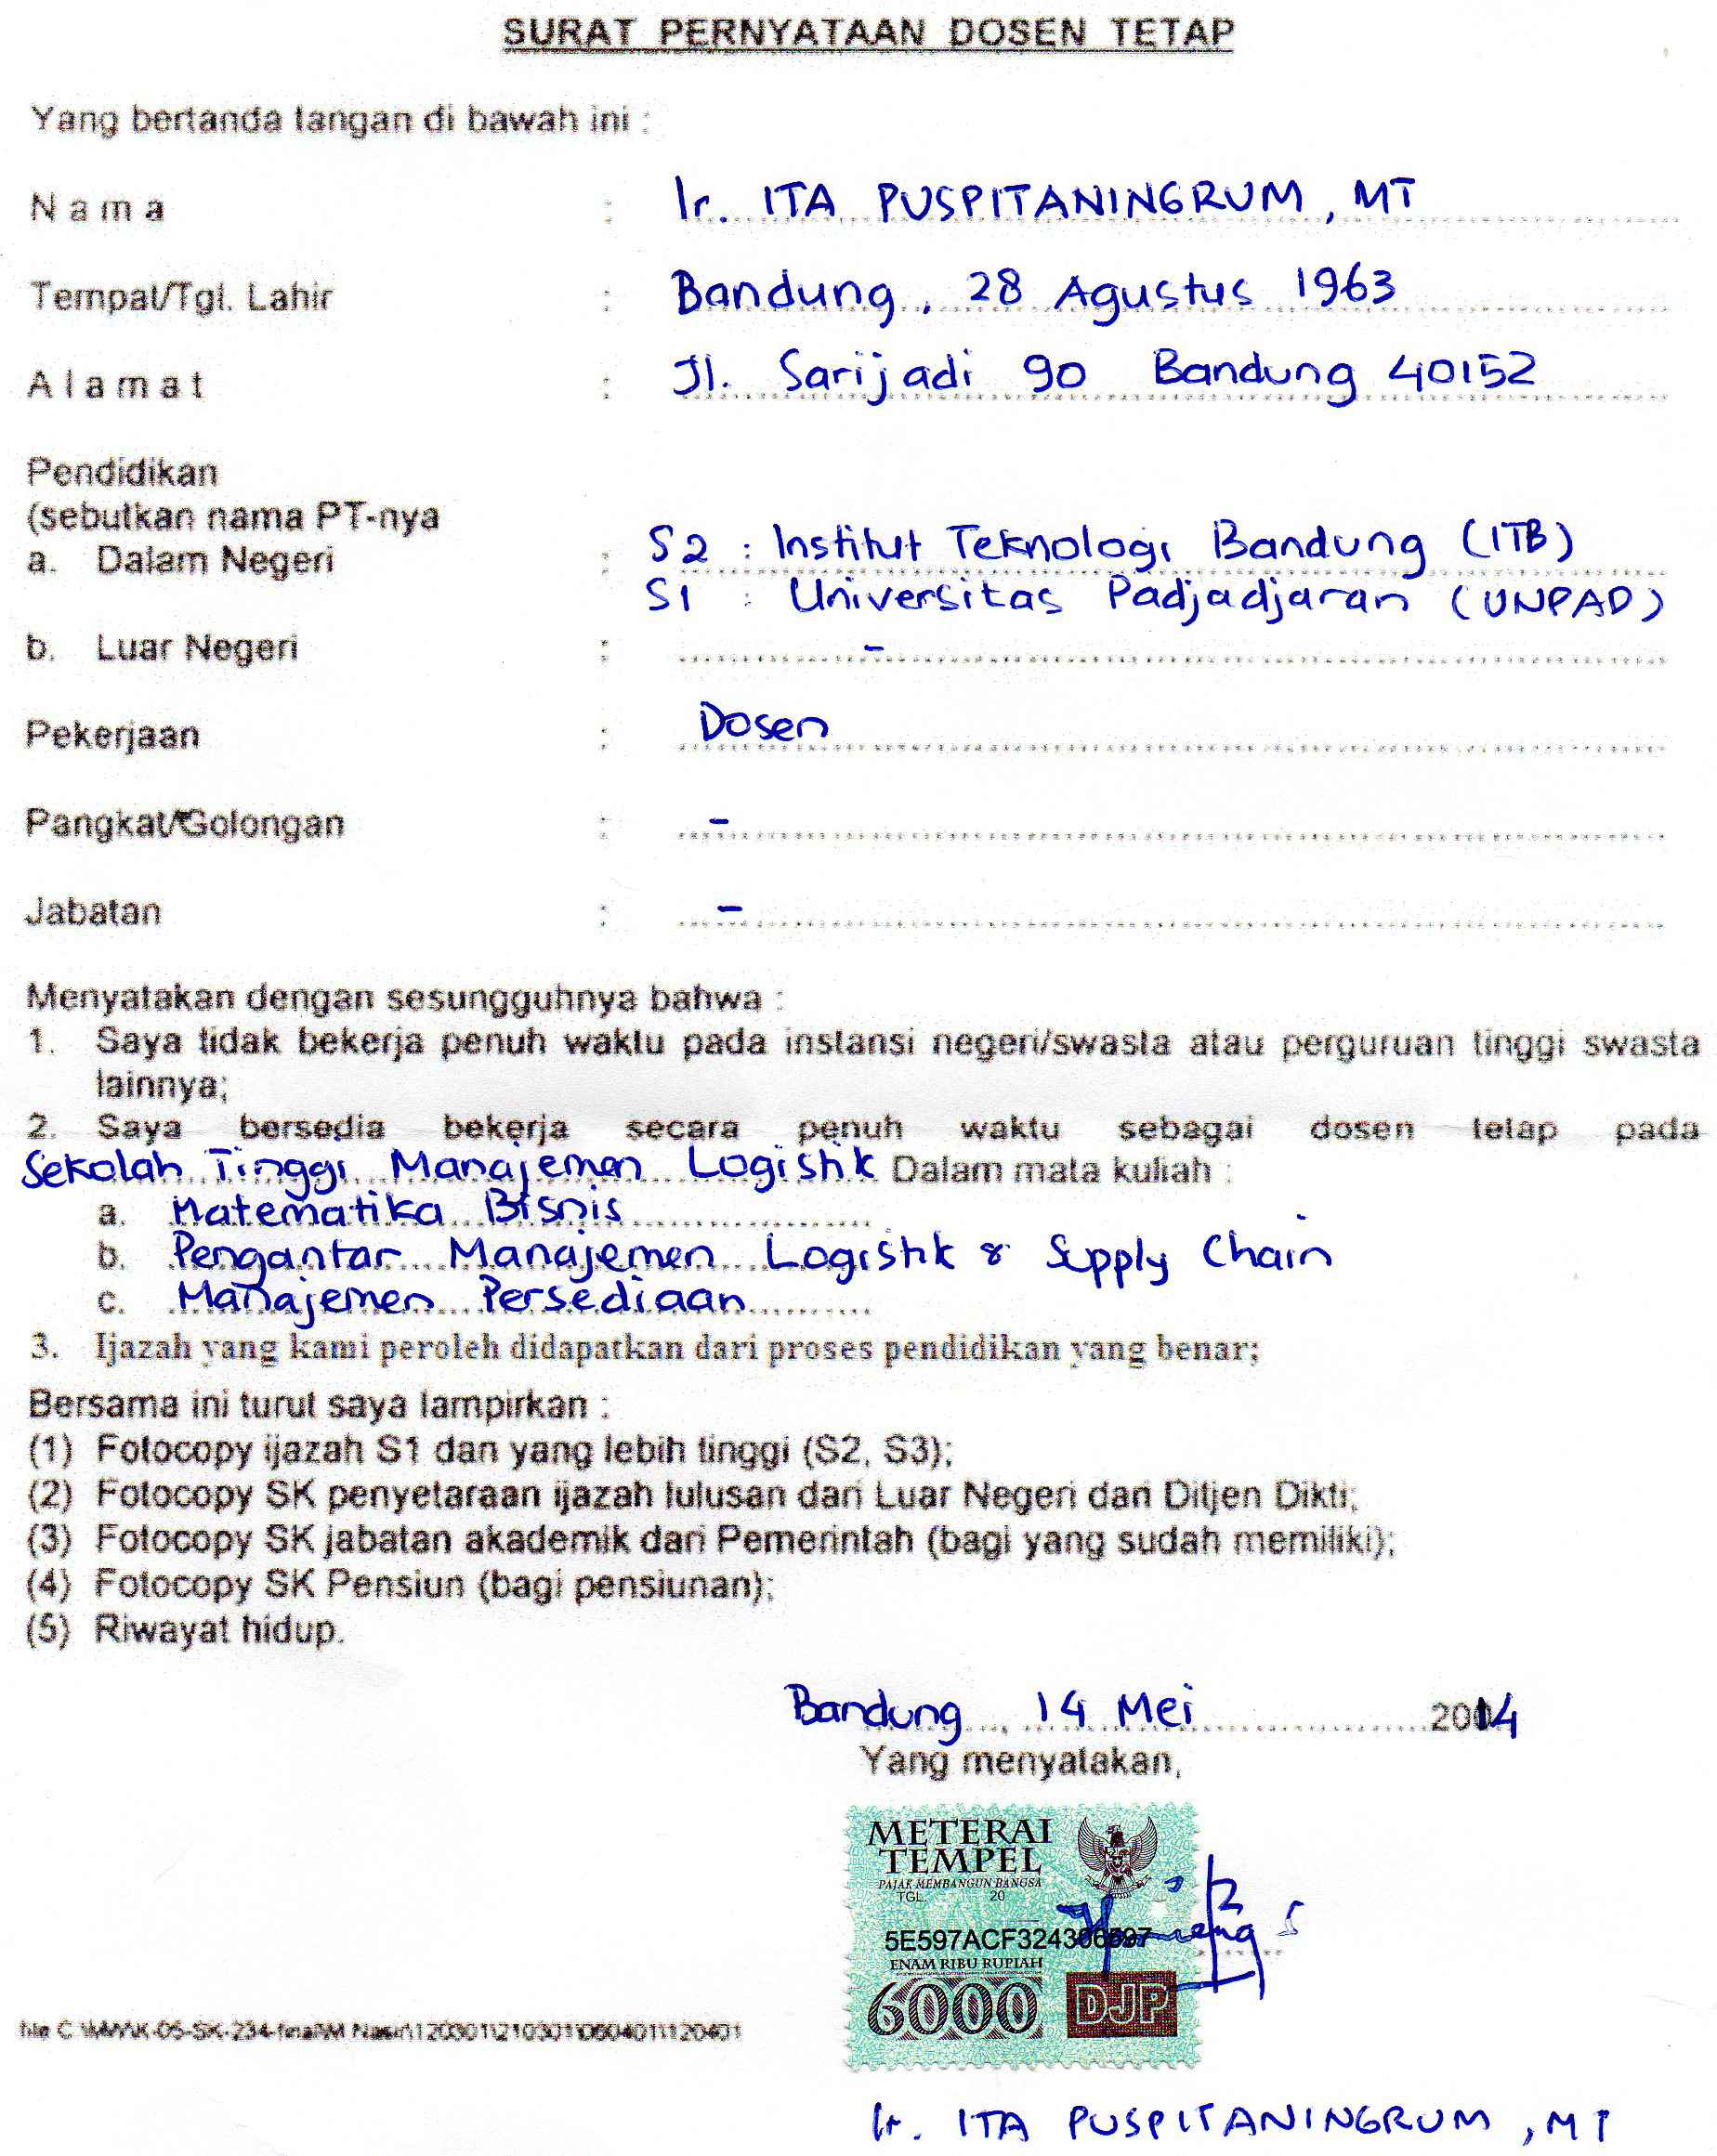 SURAT PERNYATAAN DOSEN TETAP
Yang bertanda tangan di bawah ini :
N a m a : Ir. ITA PUSPITANINGRUM, MT
Tempat/Tgl. Lahir : Bandung, 28 Agustus 1963
A l a m a t : Jl. Sarijadi 90 Bandung 40152
Pendidikan
(sebutkan nama PT-nya
a. Dalam Negeri : S2 : Institut Teknologi Bandung (ITB)
S1 : Universitas Padjadjaran (UNPAD)
b. Luar Negeri : -
Pekerjaan : Dosen
Pangkat/Golongan : -
Jabatan : -
Menyatakan dengan sesungguhnya bahwa :
1. Saya tidak bekerja penuh waktu pada instansi negeri/swasta atau perguruan tinggi swasta
lainnya;
2. Saya bersedia bekerja secara penuh waktu sebagai dosen tetap pada
Sekolah Tinggi Manajemen Logistik Dalam mata kuliah :
a. Matematika Bisnis
b. Pengantar Manajemen Logistik & Supply Chain
c. Manajemen Persediaan
3. Ijazah yang kami peroleh didapatkan dari proses pendidikan yang benar;
Bersama ini turut saya lampirkan :
(1) Fotocopy ijazah S1 dan yang lebih tinggi (S2, S3);
(2) Fotocopy SK penyetaraan ijazah lulusan dari Luar Negeri dari Ditjen Dikti;
(3) Fotocopy SK jabatan akademik dari Pemerintah (bagi yang sudah memiliki);
(4) Fotocopy SK Pensiun (bagi pensiunan);
(5) Riwayat hidup.
Bandung, 14 Mei 2014
Yang menyatakan,
METERAI
TEMPEL
PAJAK MEMBANGUN BANGSA
TGL. 20
5E597ACF324306597
ENAM RIBU RUPIAH
6000 DJP
Ir. ITA PUSPITANINGRUM, MT